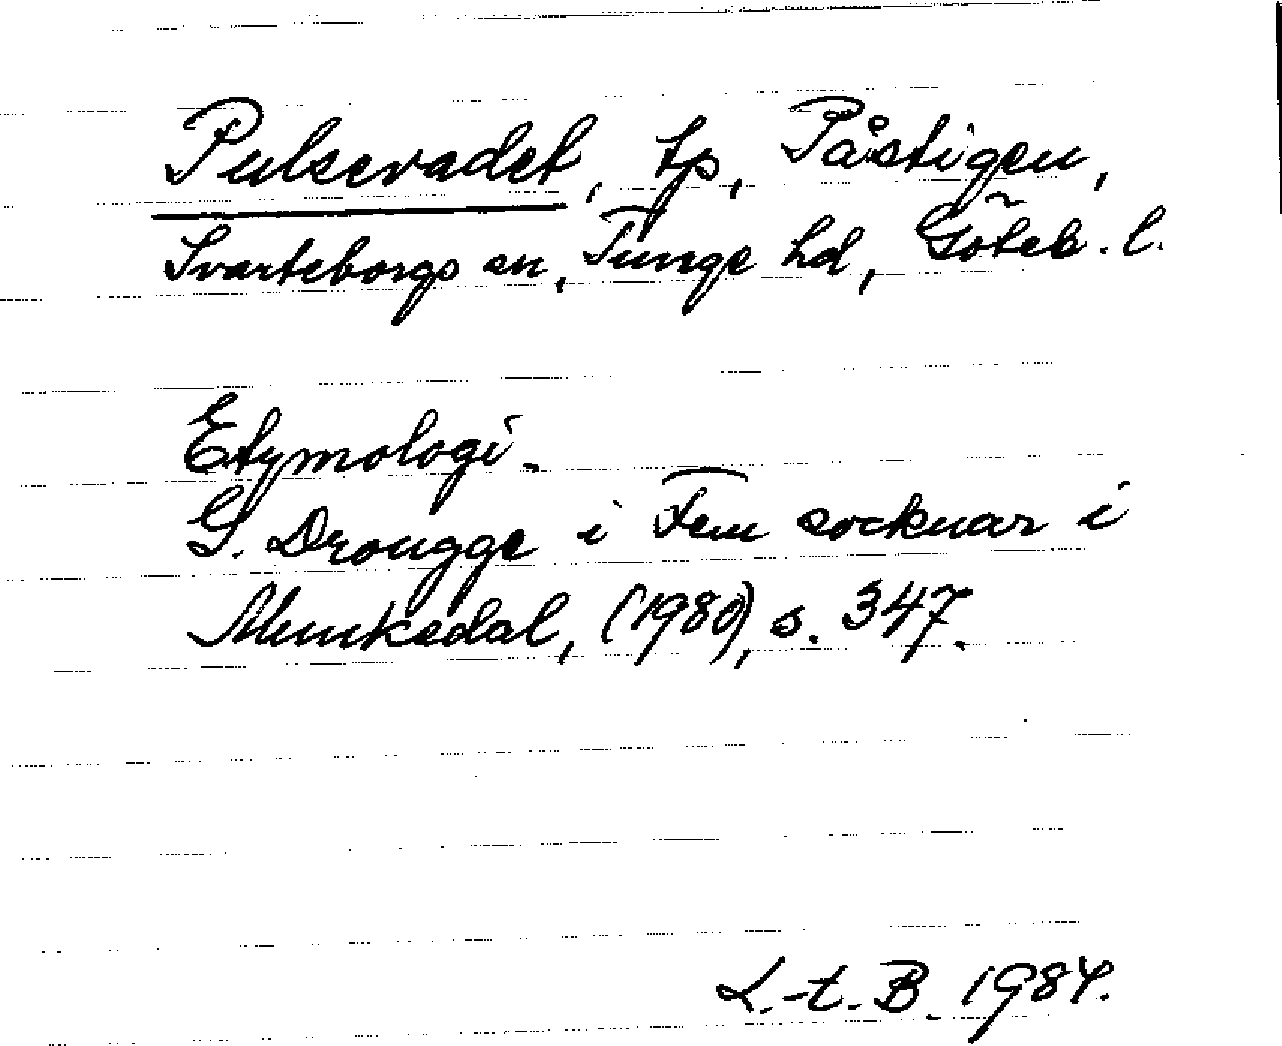 Pulsevadet, tp, Påstigen,
Svarteborgs sn, Tunge hd, Göteb. l.
Etymologi.
G. Drougge i Fem socknar i
Munkedal, (1980), s. 347.
L.-t. B. 1984.